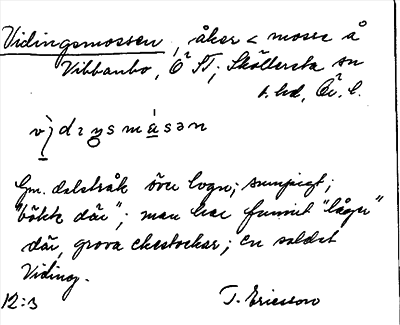 Vidingsmossen, åker < mosse å
Vibbunbo, Ö ST; Sköllersta sn
s. hd, Ör. l.
Gm. delstråk över logn; sumpigt;
"bökk där"; man har funnit "lågor"
där, grova ekestockar; en soldat
Viding.
12:3 T. Ericsson